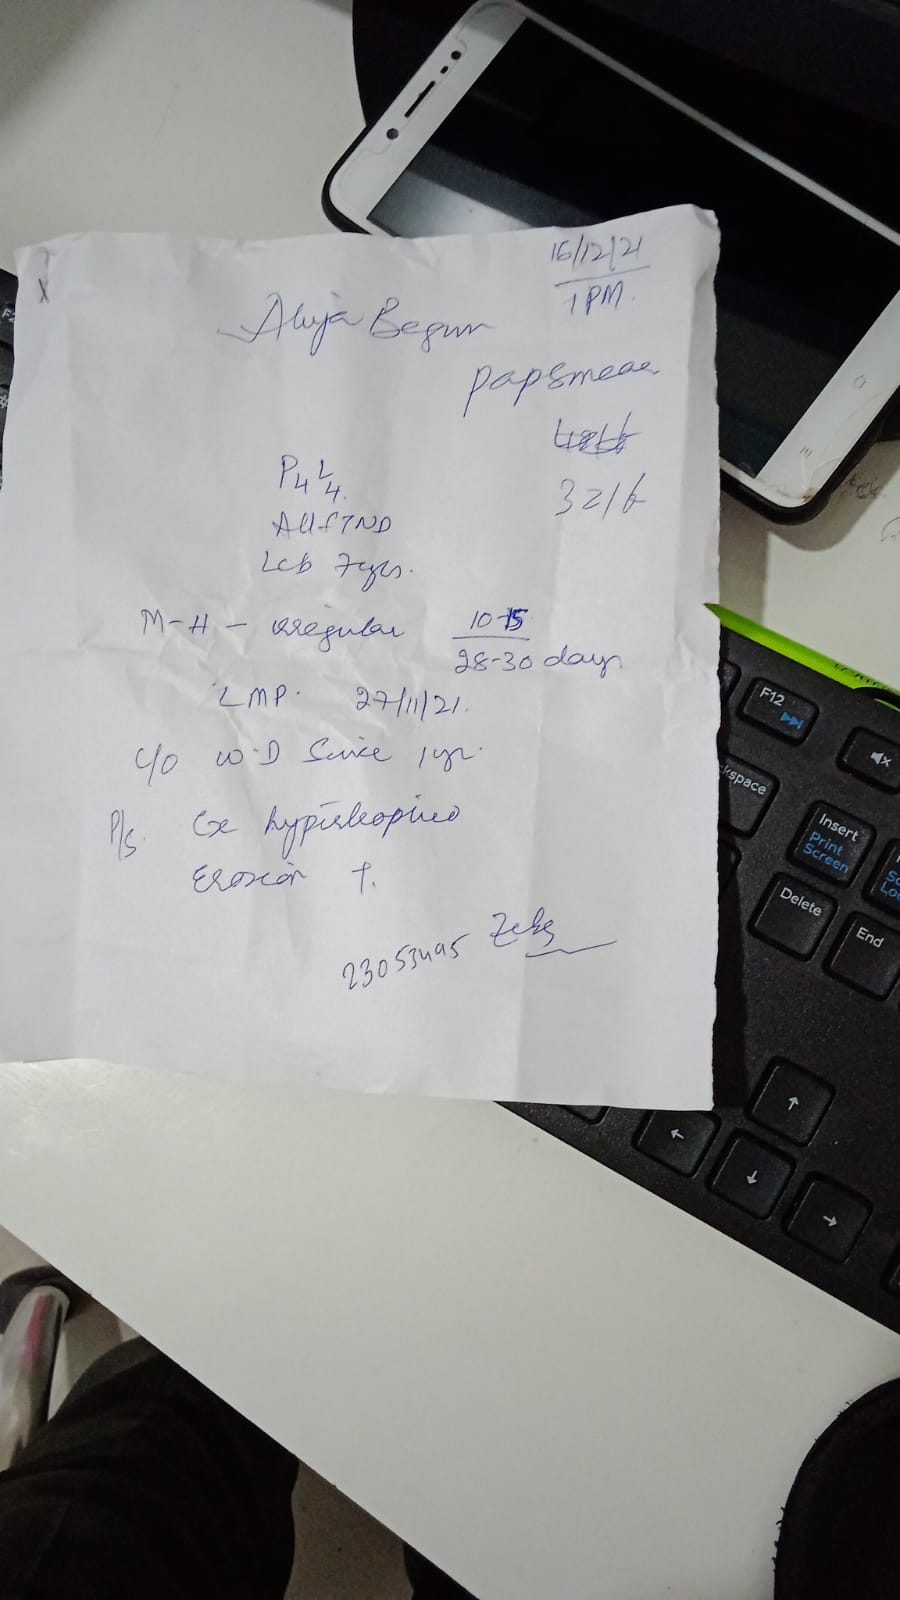 16/12/21
1 PM.
Aluja Begum
papsmear
32/f
P4L4.
All FTND
Lcb 7yrs.
M-H - irregular 10-15
28-30 days
LMP. 27/11/21.
c/o W.D Since 1yr.
P/s. Cx hypertrophied
Erosion +.
23053495
F12
Insert
Print
Screen
Delete
End